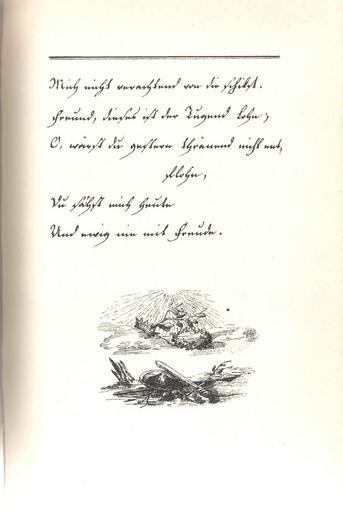 Mich nicht verachtend von dir schiebst.
Freund, dieses ist der Tugend Lohn;
O, wärst du gestern thränend nicht ent-
flohn,
Du sähst mich heute
Und ewig nie mit Freude.